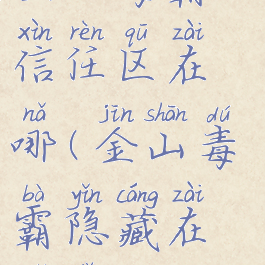 xìn rèn qū zài
信任区在
nǎ jīn shān dú
哪(金山毒
bà yǐn cáng zài
霸隐藏在